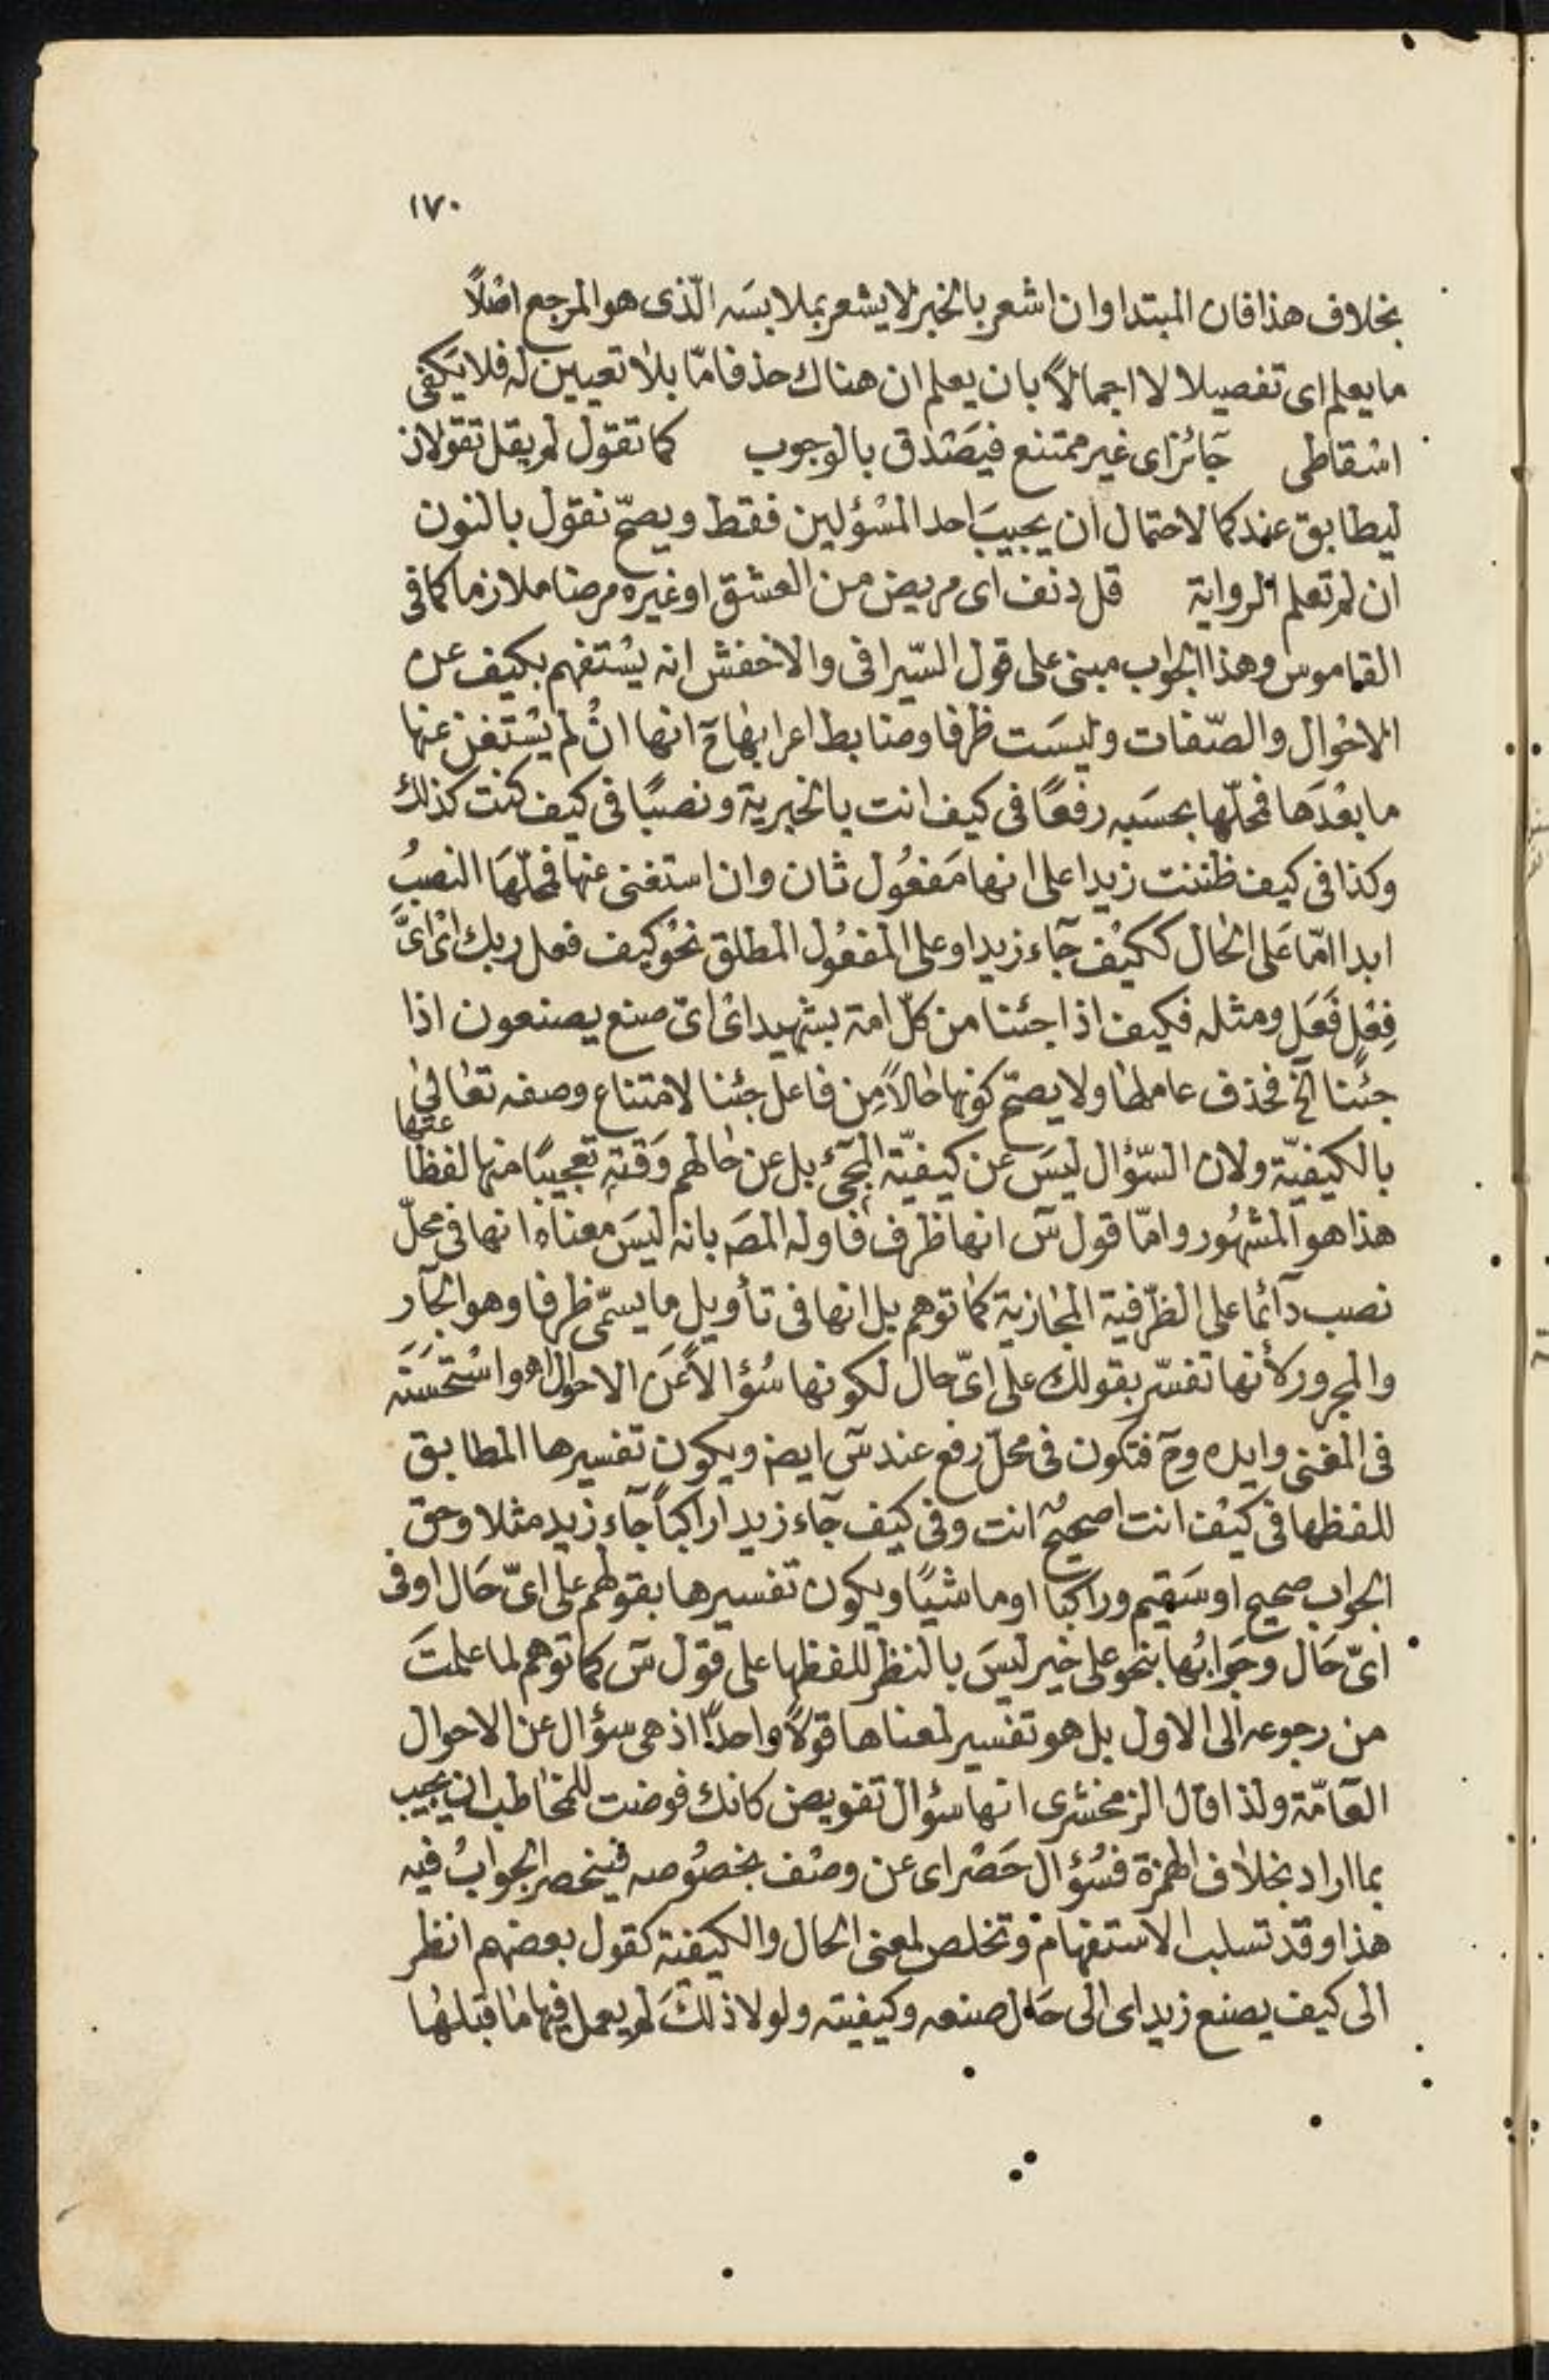 ١٧٠
بخلاف هذا فان المبتدا وان اشعر بالخبر لا يشعر بملابسَه الّذى هو المرجع اصْلًا
ما يعلم اى تفصيلا لا اجمالًا بان يعلم ان هناك حذفا مّا بلا تعيين له فلا يَكفى
اسْقاطى جَائز اى غير ممتنع فيَصْدق بالوجوب كما تقول لم يقل تقولان
ليطابق عندكما لاحتمال ان يجيبَ احد المسْؤلين فقط ويصحّ نقول بالنون
ان لم تعلم الرواية قل دنف اى مريض من العشق او غيره مرضا ملازما كما فى
القاموس وهذا الجواب مبنى على قول السّيرافى والاخفش انه يسْتفهم بكيف عن
الاحْوال والصّفات وليسَت ظرفا وضابط اعرابها ح انها انْ لم يسْتغن عنها
ما بعْدَها فمحلّها بحسَبه رفعًا فى كيف انت بالخبرية ونصبًا فى كيف كنت كذلك
وكذا فى كيف ظننت زيدا على انها مَفعُول ثان وان استغنى عنها فمحلّهَا النصبُ
ابدا امّا عَلى الحال ككيْف جَاء زيد او على المفعُول المطلق نحْو كيف فعل ربك اىْ اىَّ
فِعْلٍ فَعَل ومثله فكيف اذا جئنا من كلّ امة بشهيد اىْ اىّ صنع يصنعون اذا
جئْنا الخ فحذف عاملها ولا يصحّ كونها حالًا مِن فاعل جئنا لامتناع وصفه تعالى
بالكيفيّة ولان السّؤال ليسَ عن كيفيّة المجىٔ بل عن حالهم وَقته تعجيبًا منها لفظا
هذا هو المشهُور وامّا قول سٓ انها ظرف فاوله المصَ بانه ليسَ معناه انها فى محلّ
نصب دآئما على الظّرفية المجازية كما توهم بل انها فى تأويل ما يسمّى ظرفا وهو الجآر
والمجرور كأنها تفسّر بقولك على اىّ حال لكونها سُؤالًا عَن الاحوال اه واسْتحْسَنَه
فى المغنى وايده وح فتكون فى محلّ رفع عند سٓ ايضا ويكون تفسيرها المطابق
للفظها فى كيْف انت اصحيحٌ انت وفى كيف جَاء زيد اراكبًا جَاء زيد مثلا وحق
الجواب صحيح او سَقيم وراكبا او ماشيًا ويكون تفسيرها بقولهم على اىّ حَال او فى
اىّ حَال وجَوابُها بنحو على خير ليسَ بالنظر للفظها على قول سٓ كما توهم لما علمتَ
من رجوعه الى الاول بل هو تفسير لمعناها قولًا واحدًا اذ هى سؤال عن الاحوال
العَامّة ولذا قال الزمخشرى انها سؤال تفويض كانك فوضت للمخاطب ان يجيب
بما اراد بخلاف الهمزة فسُؤال حَصْر اى عن وصْف بخصُوصه فينحصر الجوابُ فيه
هذا وقد تسلب الاستفهام وتخلص لمعنى الحال والكيفية كقول بعضهم انظر
الى كيف يصنع زيد اى الى حَال صنعه وكيفيته ولولا ذلكَ لم يعمل فيها ما قبلها